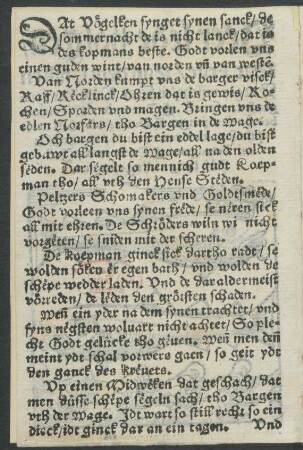 DAt Vögelken synget synen sanck/de
sommernacht de is nicht lanck/dat is
des kopmans beste. Godt vorlen vns
einen guden wint/van norden vñ van westē.
Van Norden kumpt vns de barger visck/
Raff/Recklinck/Ohren dat is gewis/Ro-
chen/Sporden vnd magen. Bringen vns de
edlen Norsfars/tho Bargen in de Wage.
Och bargen du bist ein eddel lage/du bist
gebuwt all langst de Wage/all na den olden
seden. Dar segelt so mennich gudt Koep-
man tho/all vth den Hense Steden.
Peltzers Schomakers vnd Goldtsmede/
Godt vorleen vns synen frede/se neren sick
all mit ehren. De Schröders wiln wi nicht
vorgeten/se sniden mit der scheren.
De Koepman ginck sick dartho radt/se
wolden söken er egen bath/vnd wolden de
schepe wedder laden. Vnd de dar aldermeist
vörreden/de leden den grötsten schaden.
Wen ein yder na dem synen trachtet/vnd
syns negsten woluart nicht achtet/So ple-
cht Godt gelücke tho geuen. Wen men den
meint ydt schal vorwers gaen/so geit ydt
den ganck des Kreuets.
Vp einen Midweken dat geschach/dat
men düsse schepe segeln sach/tho Bargen
vth der Wage. Idt wart so still recht so ein
dieck/idt ginck dar an ein tagen. Vnd